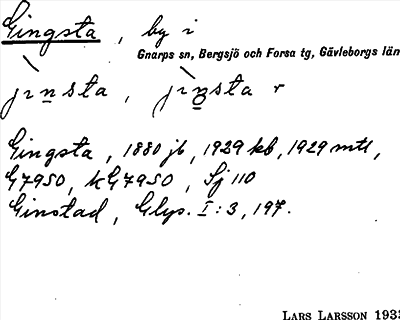 Gingsta, by i
Gnarps sn, Bergsjö och Forsa tg, Gävleborgs län
jɪnsta, jɪnsta r
Gingsta, 1880 jb, 1929 kb, 1929 mtl,
G7950, kG7950, Sj 110
Ginstad, Glys. I:3, 197.
LARS LARSSON 1933